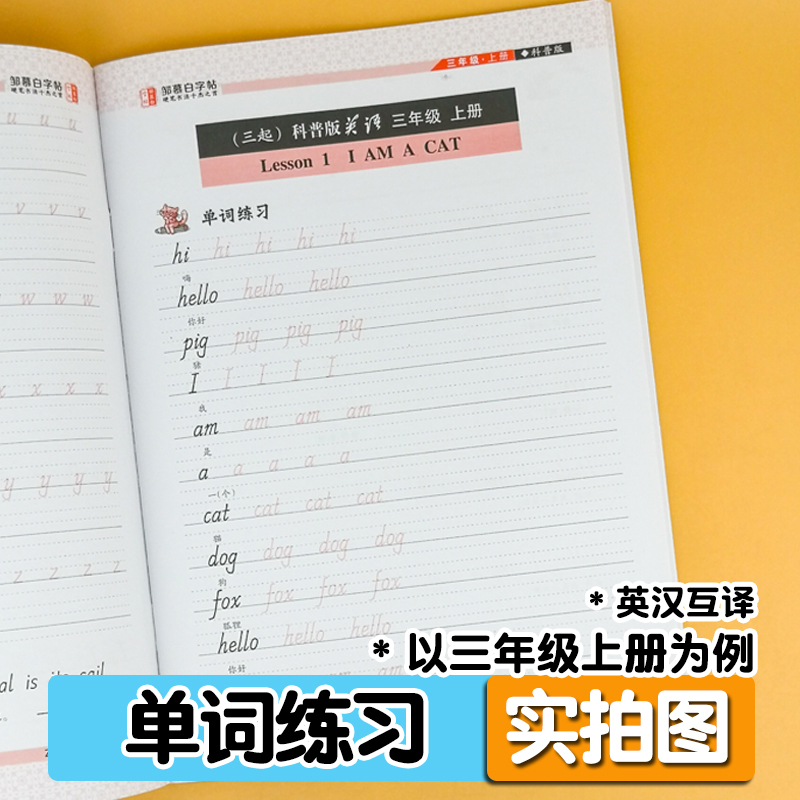 邹慕白字帖
硬笔书法十杰之首
u u u
v v v
w w w w
x x x x
y y y y
z z z z
is its sail
邹慕白字帖
硬笔书法十杰之首
三年级·上册 ◆科普版
（三起）科普版英语 三年级 上册
Lesson 1 I AM A CAT
单词练习
hi hi hi hi hi
嗨
hello hello hello
你好
pig pig pig pig
猪
I I I I I
我
am am am am
是
a a a a a
一(个)
cat cat cat cat
猫
dog dog dog dog
狗
fox fox fox fox
狐狸
hello hello hello
你好
* 英汉互译
* 以三年级上册为例
单词练习 实拍图